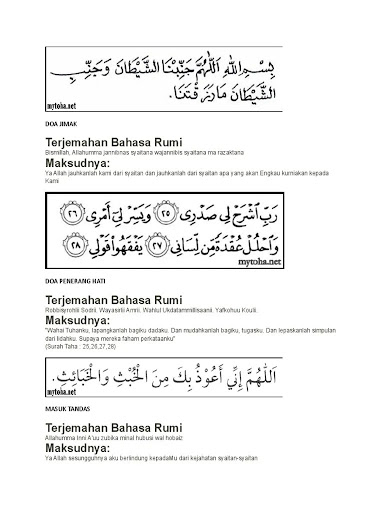 بِسْمِ اللهِ اَللّٰهُمَّ جَنِّبْنَا الشَّيْطَانَ وَجَنِّبِ
الشَّيْطَانَ مَا رَزَقْتَنَا.
mytoha.net
DOA JIMAK
Terjemahan Bahasa Rumi
Bismillah, Allahumma jannibnas syaitana wajannibis syaitana ma razaktana
Maksudnya:
Ya Allah jauhkanlah kami dari syaitan dan jauhkanlah dari syaitan apa yang akan Engkau kurniakan kepada
Kami
رَبِّ ٱشْرَحْ لِى صَدْرِى ﴿٢٥﴾ وَيَسِّرْ لِىٓ أَمْرِى ﴿٢٦﴾
وَٱحْلُلْ عُقْدَةً مِّن لِّسَانِى ﴿٢٧﴾ يَفْقَهُوا۟ قَوْلِى ﴿٢٨﴾
mytoha.net
DOA PENERANG HATI
Terjemahan Bahasa Rumi
Robbisyrohlii Sodrii. Wayasirlii Amrii. Wahlul Ukdatammillisaanii. Yafkohuu Koulii.
Maksudnya:
"Wahai Tuhanku, lapangkanlah bagiku dadaku. Dan mudahkanlah bagiku, tugasku. Dan lepaskanlah simpulan
dari lidahku. Supaya mereka faham perkataanku"
(Surah Taha : 25,26,27,28)
اَللّٰهُمَّ إِنِّي أَعُوْذُ بِكَ مِنَ الْخُبْثِ وَالْخَبَائِثِ.
mytoha.net
MASUK TANDAS
Terjemahan Bahasa Rumi
Allahumma Inni A'uu zubika minal hubusi wal hobaiz
Maksudnya:
Ya Allah sesungguhnya aku berlindung kepadaMu dari kejahatan syaitan-syaitan